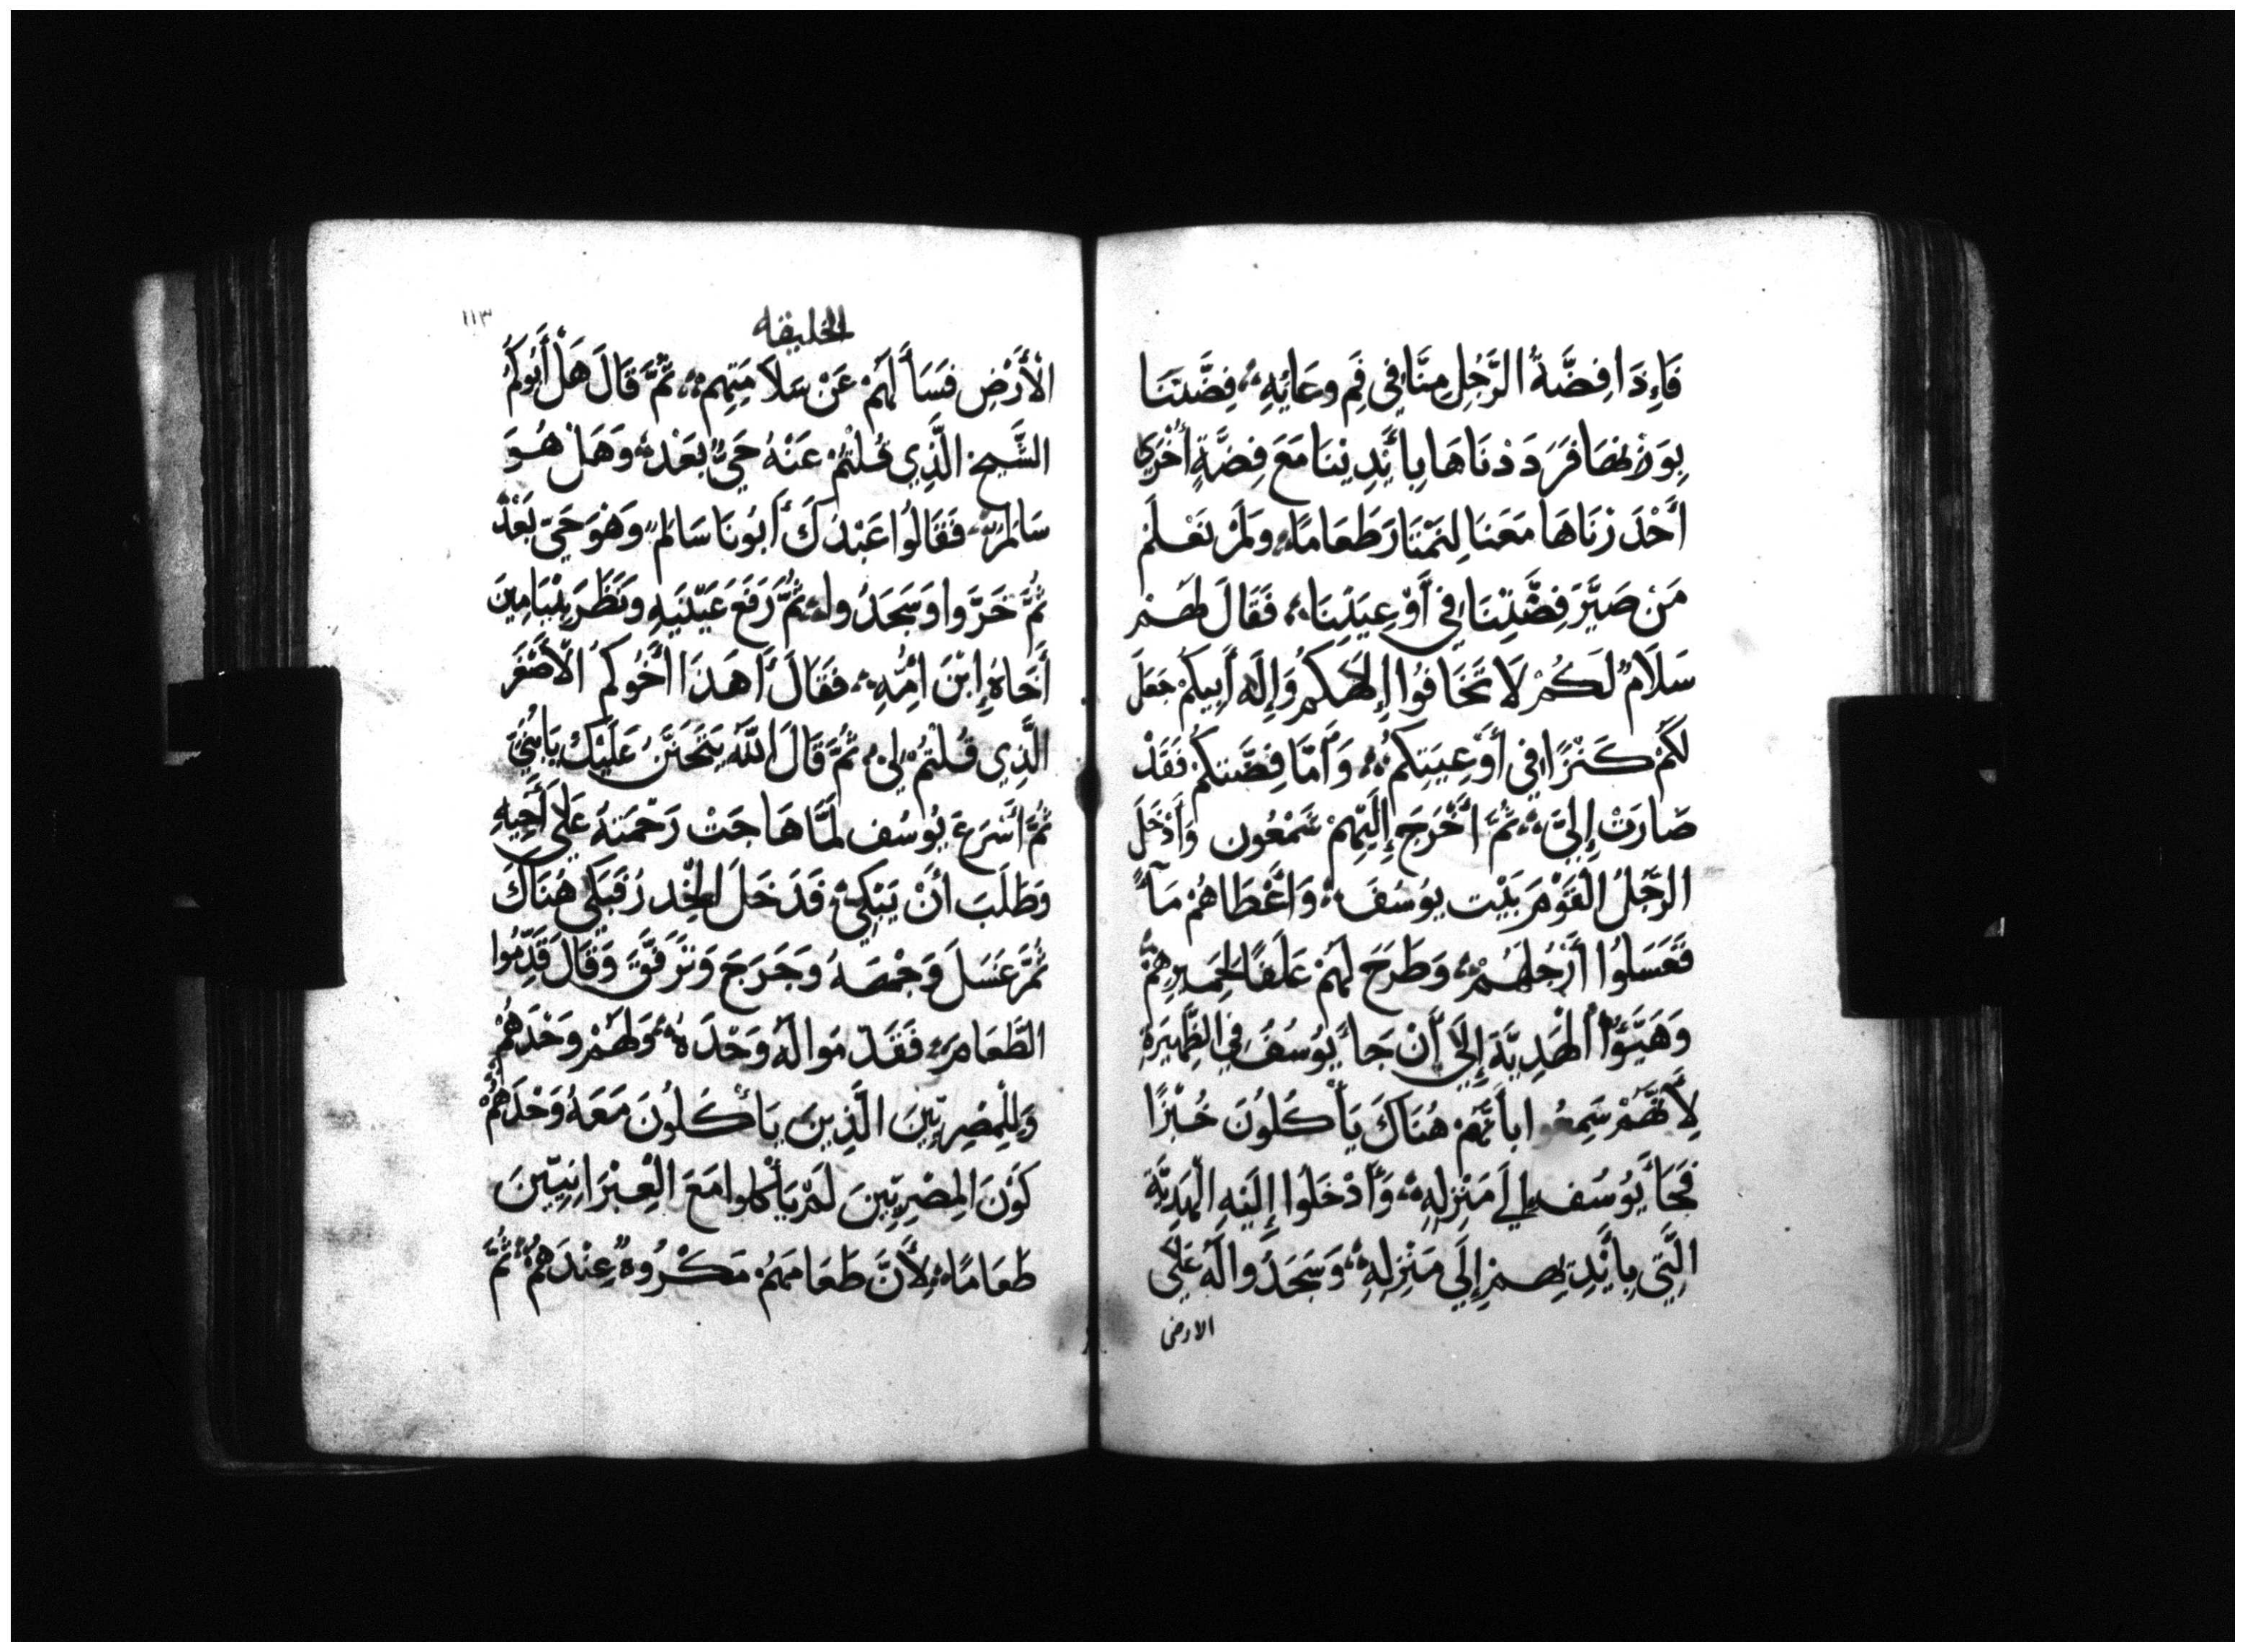 فَإِذَا فِضَّةُ الرَّجُلِ مِنَّا فِي فَمِ وِعَايُهِ، فِضَّتَنَا
بِوَزْنِهَا فَرَدَدْنَاهَا بِأَيْدِينَنَا مَعَ فِضَّةٍ أُخْرَي
أَحْدَرْنَاهَا مَعَنَا لِنَمْتَارَ طَعَامًا، وَلَمْ نَعْلَمْ
مَنْ صَيَّرَ فِضَّتِنَا فِي أَوْعِيَتِنَا، فَقَالَ لَهُمْ
سَلَامٌ لَكُمْ لَا تَخَافُوا إِلَاهَكُم وَإِلَه أَبِيكُمْ جَعَلَ
لَكُمْ كَنْزًا فِي أَوْعِيَتِكُمْ، وَأَمَّا فِضَّتَكُمْ فَقَدْ
صَارَتْ إِلَيَّ، ثُمَّ أَخْرَجَ إِلَيْهِمْ شَمْعُون وَأَدْخَلَ
الرَّجُلُ الْقَوْمَ بَيْت يوُسُفَ، وَأَعْطَاهُمْ مَآءً
فَغَسَلوُا أَرْجُلَهُمْ، وَطَرَحَ لَهُمْ عَلَفًا لِحَمِيرِهِمْ
وَهَيَّؤُا الْهَدِيَّةَ إِلَي أَنْ جَاءَ يوُسُفُ فِي الظَّهِيرَةِ
لِأَنَّهُمْ سَمِعُوا بِأَنَّهُمْ هُنَاكَ يَأْكُلوُنَ خُبْزًا
فَجَاءَ يوُسُف إِلَي مَنْزِلِهِ، وَأَدْخَلوُا إِلَيْهِ الْهَدِيَّةَ
الَّتِي بِأَيْدِيهِمْ إِلَي مَنْزِلِهِ، وَسَجَدُوا لَهُ عَلَي
الارض
الخليقه
١١٣
الْأَرْضِ فَسَأَلَهُمْ عَنْ سَلَامَتِهِمْ، ثُمَّ قَالَ هَلْ أَبُوكُمُ
الشَّيخ الَّذِي قُلْتُمْ عَنْهُ حَيٌّ بَعْدُ، وَهَلْ هُوَ
سَالِمٌ، فَقَالُوا عَبْدُكَ أَبُونَا سَالِمٌ وَهْوَ حَيّ بَعْدُ
ثُمَّ خَرَّوا وَسَجَدُوا لهُ ثُمَّ رَفَعَ عَيْنَيهِ وَنَظَرَ بِنْيَامِينَ
أَخَاهُ إِبْنَ أُمِّهِ، فَقَالَ أَهَذَا أَخُوكُمُ الْأَصْغَرَ
الَّذِي قُلْتُمْ لِي ثُمَّ قَالَ اللَّهُ يَتَحَنَّنُ عَلَيْكَ يَا بُنَيَّ
ثُمَّ أَسْرَعَ يوُسُف لَمَّا هَاجَتْ رَحْمَتهُ عَلَي أَخِيهِ
وَطَلَبَ أَنْ يَبْكِيَ فَدَخَلَ الخِدر فَبَكَي هُنَاكَ
ثُمَّ غَسَلَ وَجْهَهُ وَخَرَجَ وَتَرَفَّقَ وَقَالَ قَدِّمُوا
الطَّعَامَ، فَقَدَّمَوا لَهُ وَحْدَهُ، وَلَهُمْ وَحْدَهُمْ
وَلِلْمِصْرِيِّينَ الَّذِينَ يَأْكُلُونَ مَعَهُ وَحْدَهُمْ
كَوْنَ المِصْرِيِّينَ لَمْ يَأْكُلوا مَعَ الْعِبْرَانِيّينَ
طَعَامًا، لِأَنَّ طَعَامَهُمْ مَكْرُوهٌ عِنْدَهُمْ، ثُمَّ